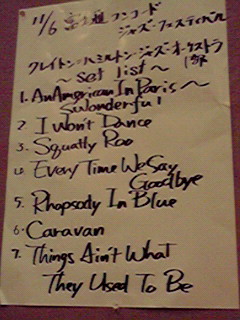 11/6 富士通コンコード
ジャズ・フェスティバル
クレイトン=ハミルトン・ジャズ・オーケストラ
1部
~ set list ~
1. An American In Paris ~
S'wonderful
2 I Won't Dance
3. Squatty Roo
4. Every Time We Say
Goodbye
5. Rhapsody In Blue
6. Caravan
7. Things Ain't What
They Used To Be